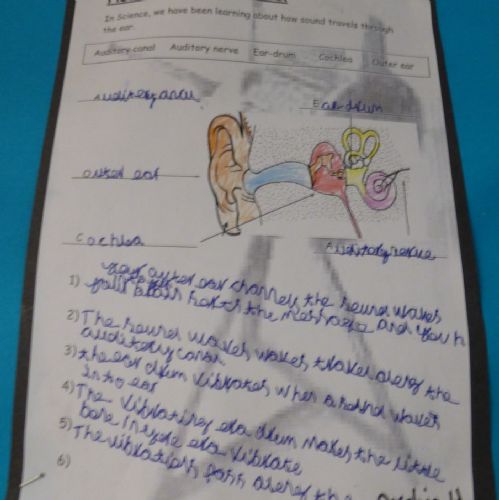 In Science, we have been learning about how sound travels through
the ear.
Auditory canal Auditory nerve Ear-drum Cochlea Outer ear
Ear drum
outer ear
Cochlea
1) outer ear channel the sound waves
your brain the message and you h
2) The sound waves travel along the
auditory canal
3) the ear drum vibrates when sound waves
into ear
4) The vibrating ear drum makes the little
bone inside ear vibrate
5) The vibrations pass along the
6)